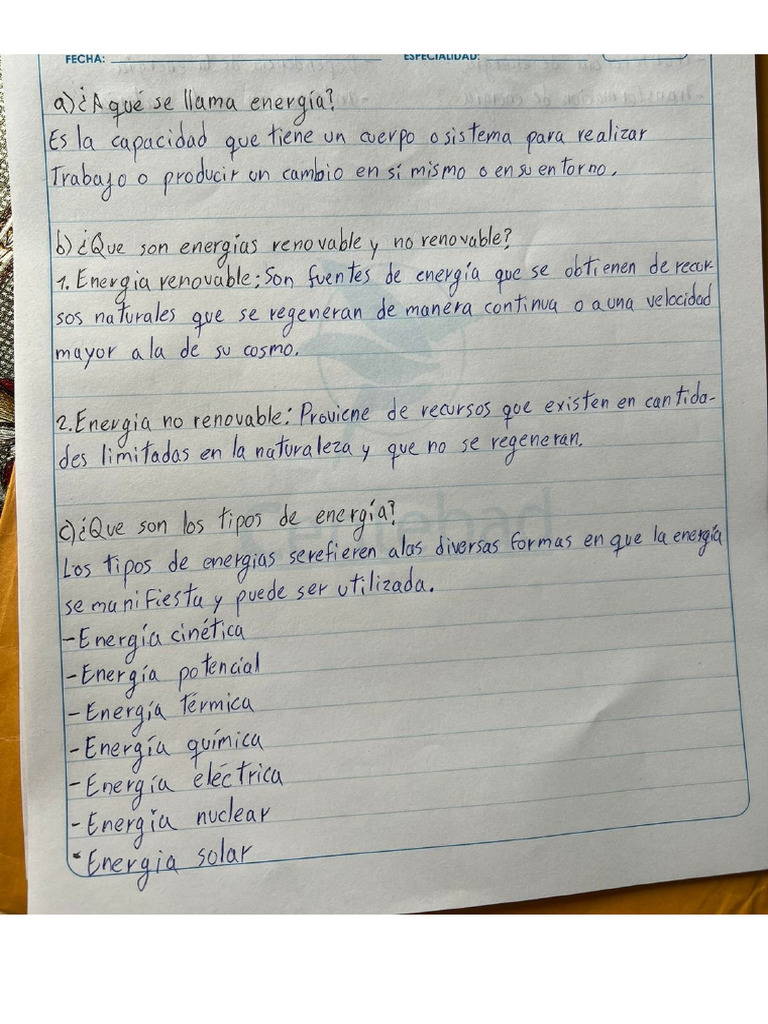 FECHA: ESPECIALIDAD:
a) ¿A qué se llama energía?
Es la capacidad que tiene un cuerpo o sistema para realizar
Trabajo o producir un cambio en sí mismo o en su entorno.
b) ¿Que son energías renovable y no renovable?
1. Energia renovable: Son fuentes de energía que se obtienen de recur-
sos naturales que se regeneran de manera continua o a una velocidad
mayor a la de su cosmo.
2. Energia no renovable: Proviene de recursos que existen en cantida-
des limitadas en la naturaleza y que no se regeneran.
c) ¿Que son los tipos de energía?
Los tipos de energias se refieren a las diversas formas en que la energía
se manifiesta y puede ser utilizada.
- Energía cinética
- Energía potencial
- Energía térmica
- Energía química
- Energía eléctrica
- Energía nuclear
- Energia solar